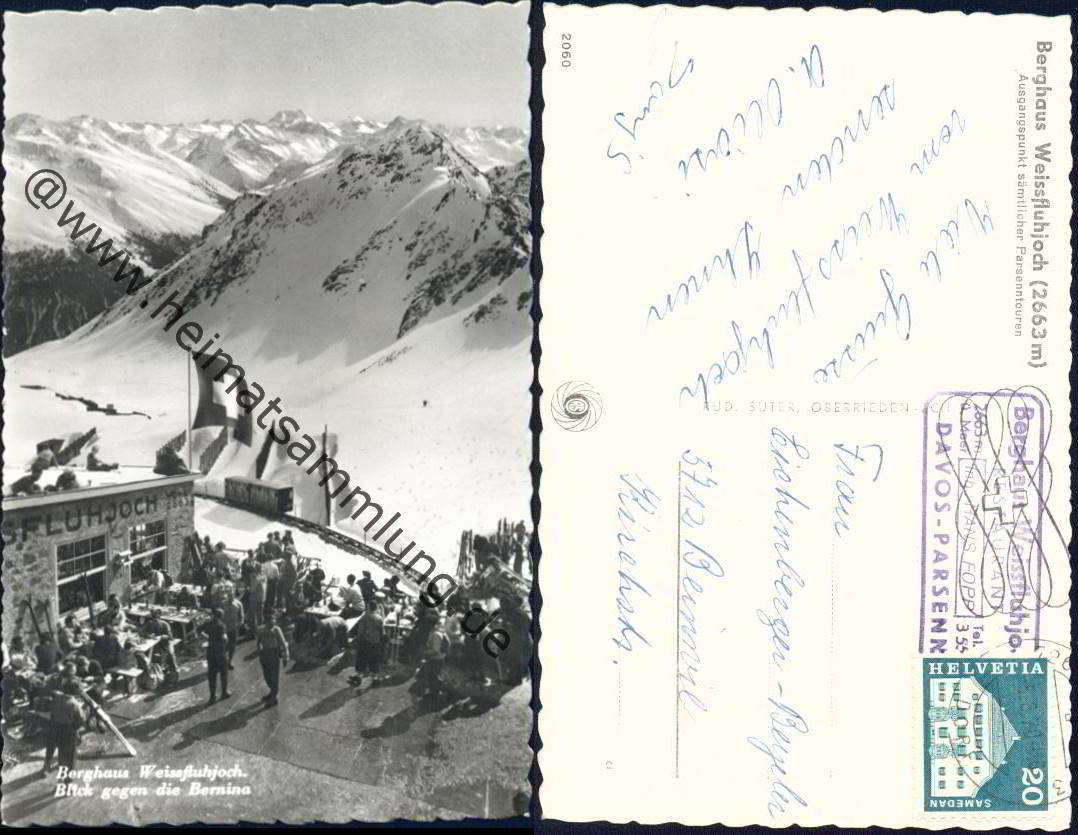 @www.heimatsammlung.de
FLUHJOCH
Berghaus Weissfluhjoch.
Blick gegen die Bernina
2060
Berghaus Weissfluhjoch (2663 m)
Ausgangspunkt sämtlicher Parsenntouren
Viele Grüsse
vom Weissfluhjoch
senden Ihnen
RUD. SUTER, OBERRIEDEN-ZCH
Berghaus Weissfluhjo.
2663 m
ü. Meer
RESTAURANT
HANS FOPP
Tel.
3 55
DAVOS-PARSENN
HELVETIA
20
SAMEDAN
Frau
Eichenberger-
5712 Beinwil
Kirchstr.